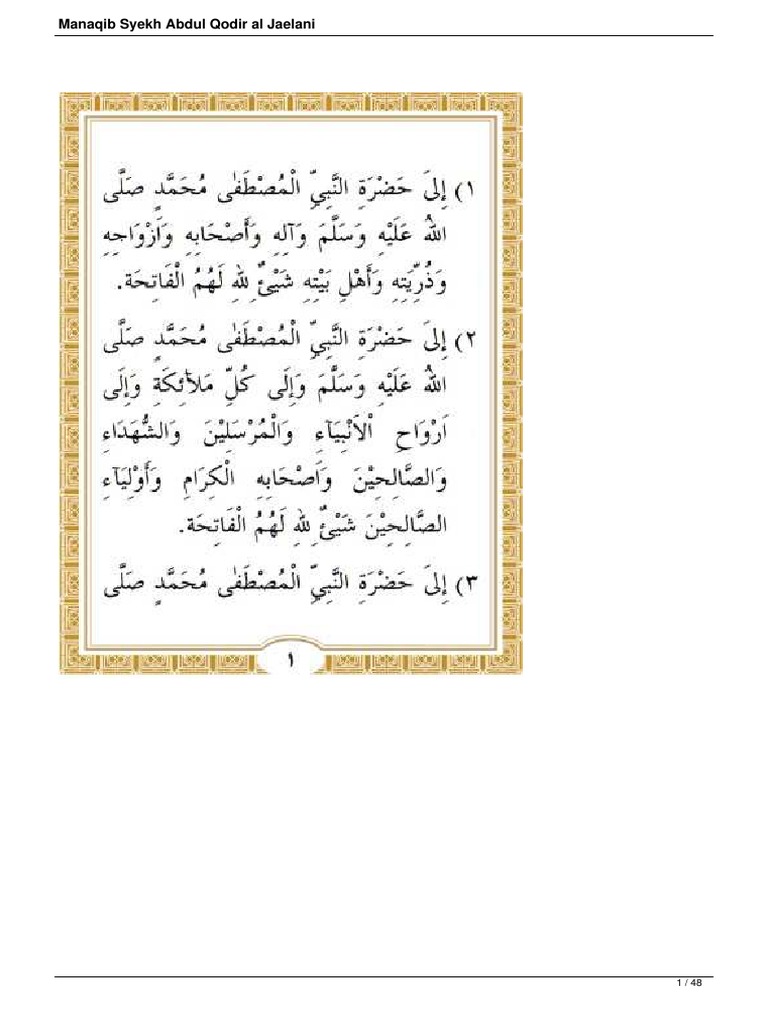 Manaqib Syekh Abdul Qodir al Jaelani
١) إِلىَ حَضْرَةِ النَّبِيِّ الْمُصْطَفٰى مُحَمَّدٍ صَلَّى
اللهُ عَلَيْهِ وَسَلَّمَ وَآلِهِ وَأَصْحَابِهِ وَأَزْوَاجِهِ
وَذُرِّيَتِهِ وَأَهْلِ بَيْتِهِ شَيْئٌ لِلهِ لَهُمُ الْفَاتِحَة.
٢) إِلىَ حَضْرَةِ النَّبِيِّ الْمُصْطَفٰى مُحَمَّدٍ صَلَّى
اللهُ عَلَيْهِ وَسَلَّمَ وَإِلَى كُلِّ مَلَائِكَةِ وَإِلَى
اَرْوَاحِ اْلاَنْبِيَآءِ وَالْمُرْسَلِيْنَ وَالشُّهَدَاءِ
وَالصَّالِحِيْنَ وَاَصْحَابِهِ الْكِرَامِ وَأَوْلِيَآءِ
الصَّالِحِيْنَ شَيْئٌ لِلهِ لَهُمُ الْفَاتِحَة.
٣) إِلىَ حَضْرَةِ النَّبِيِّ الْمُصْطَفٰى مُحَمَّدٍ صَلَّى
١
1 / 48